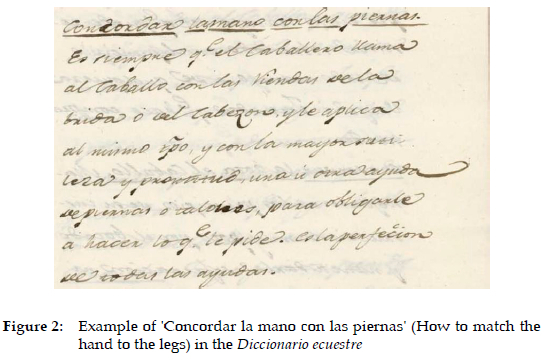 Concordar la mano con las piernas.
Es siempre q.e el Caballero llama
al Caballo con las Riendas de la
brida ó del Cabezon, y le aplica
al mismo tpo, y con la mayor suti
leza y una ú otra ayuda
de piernas ó talones, para obligarle
a hacer lo q.e le pide. Es la perfeccion
de todas las ayudas.
Figure 2: Example of 'Concordar la mano con las piernas' (How to match the
hand to the legs) in the Diccionario ecuestre